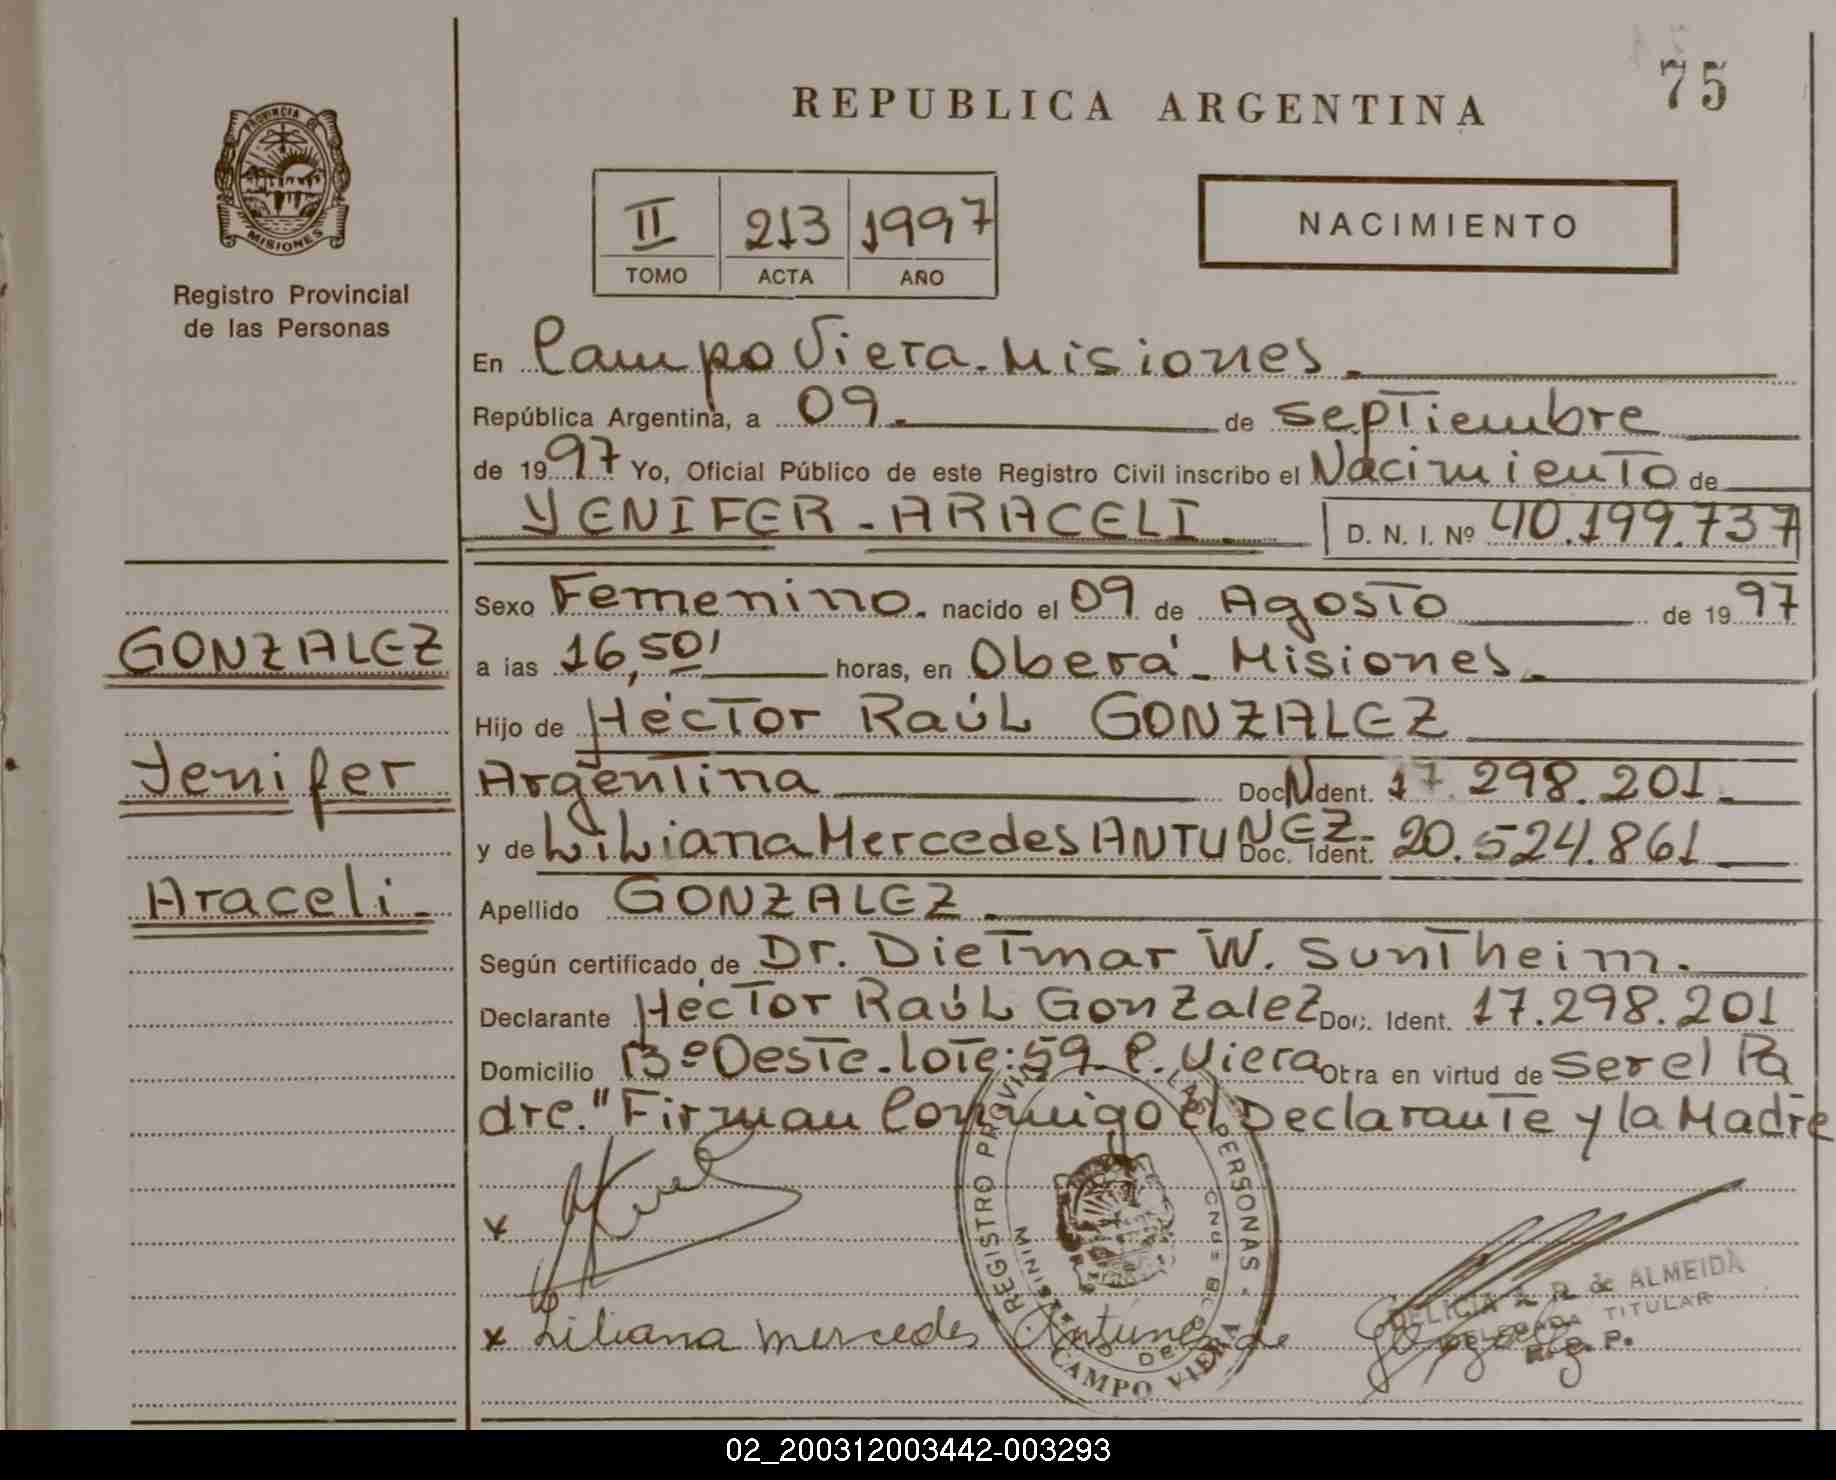 REPUBLICA ARGENTINA
75
PROVINCIA DE
MISIONES
Registro Provincial
de las Personas
II 213 1997
TOMO ACTA AÑO
NACIMIENTO
En Campo Viera - Misiones.
República Argentina, a 09. de septiembre
de 1997 Yo, Oficial Público de este Registro Civil inscribo el Nacimiento de
YENIFER - ARACELI D. N. I. Nº 40.199.737
Sexo Femenino. nacido el 09 de Agosto de 1997
GONZALEZ
a las 16,50' horas, en Oberá - Misiones.
Hijo de Héctor Raúl GONZALEZ
Yenifer
Argentina Doc. Ident. 17.298.201.
y de Liliana Mercedes ANTUNEZ- Doc. Ident. 20.524.861
Araceli-
Apellido GONZALEZ.
Según certificado de Dr. Dietmar W. Suntheim.
Declarante Héctor Raúl Gonzalez Doc. Ident. 17.298.201
Domicilio 13º Oeste - lote: 59 - C. Viera Otra en virtud de ser el Pa
dre." Firman Conmigo el Declarante y la Madre
x
x Liliana mercedes Antunez de
REGISTRO PERSONAS
CAMPO VIERA
DELICIA R. de ALMEIDA
DELEGADA TITULAR
R. P. P.
02_200312003442-003293